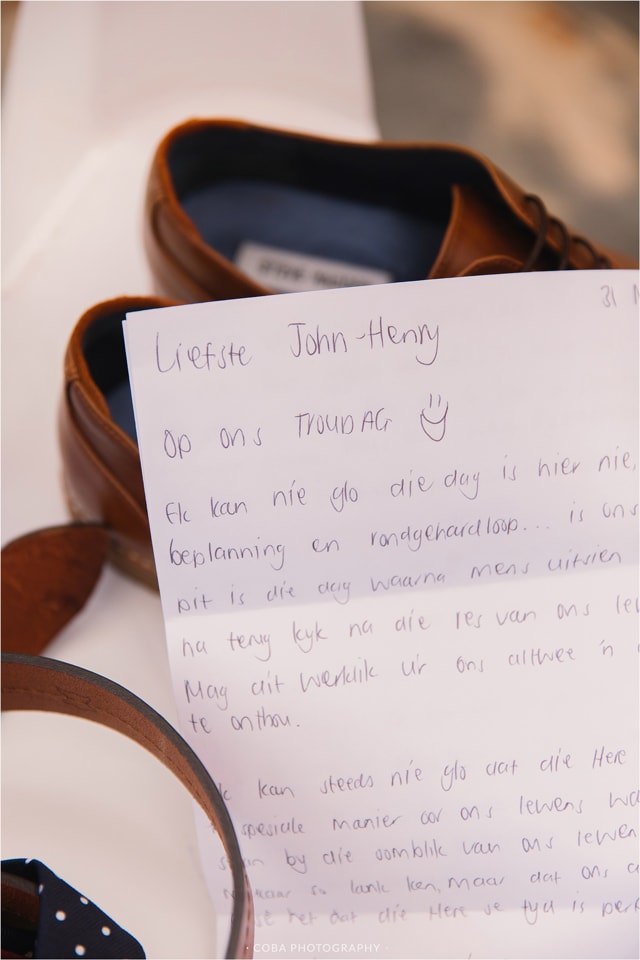 31
Liefste John-Henry
Op ons TROUDAG
Ek kan nie glo die dag is hier nie,
beplanning en rondgehardloop... is ons
Dit is die dag waarna mens uitsien
na terug kyk na die res van ons
Mag dit werklik vir ons altwee 'n
te onthou.
kan steeds nie glo dat die Here
spesiale manier oor ons lewens
by die oomblik van ons lewen
so lank ken, maar dat ons
het dat die Here se tyd is perf
· COBA PHOTOGRAPHY ·